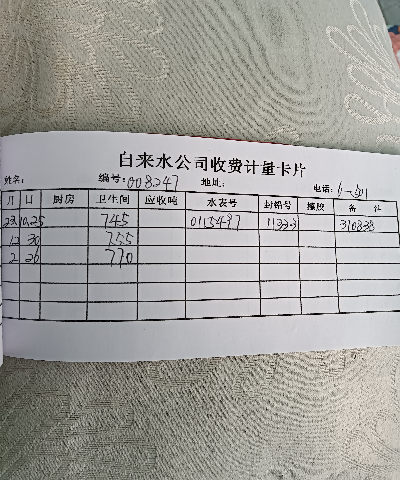 自来水公司收费计量卡片
姓名: 编号:008247 地址: 电话:6-501
月 日 厨房 卫生间 应收吨 水表号 封铅号 备 注
23.10.25 745 0115497 11333 310338
12 30 755
2 26 770